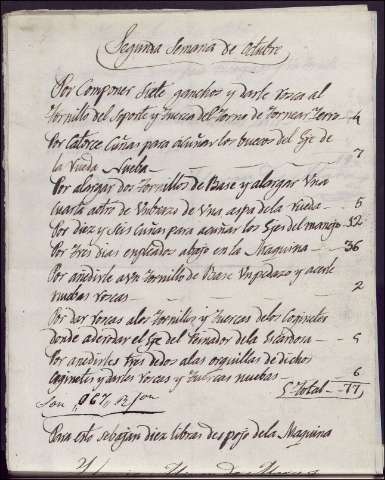 Segunda Semana de Octubre
Por Componer Siete ganchos y darle rosca al
tornillo del Soporte y tuerca del torno de tornear Yerro - 4
Por Catorce Cuñas para acuñar los huecos del Eje de
la rueda Nueba - 7
Por alargar dos tornillos de Base y alargar Una
cuarta aotro de Unbrazo de Una aspa dela rueda - 5
Por diez y Seis Cuñas para acuñar los Ejes del manejo - 12
Por tres dias enpleados abajo en la Maquina - 36
Por añedirle aUn tornillo de Base Unpedazo y acerle
nuebas roscas - 2
Por dar roscas alos tornillos y tuercas delos Coginetes
donde ade rodar el Eje del
Por añedirles tres dedos alas orquillas de dichos
Coginetes y darles roscas y tuercas nuebas - 6
Total - 77
Son 067
Para esto sebajan diez libras despojo dela Maquina